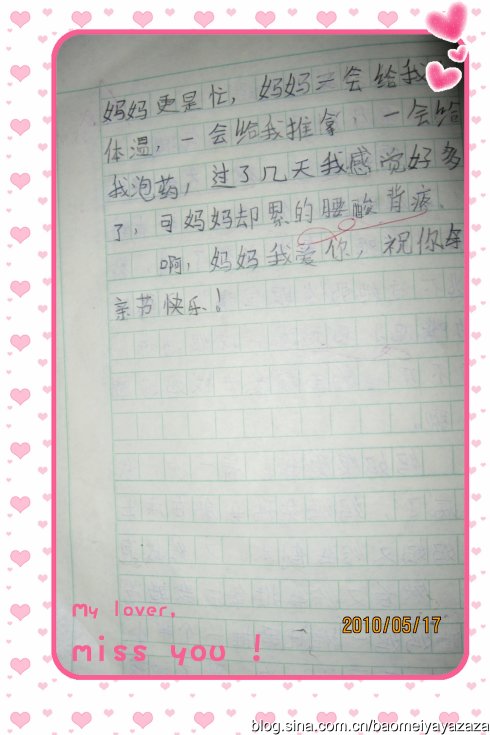 妈妈更是忙，妈妈一会给我
体温，一会给我推拿，一会给
我泡药，过了几天我感觉好多
了，可妈妈却累的腰酸背疼。
啊，妈妈我爱你，祝你母
亲节快乐！
My lover,
miss you !
2010/05/17
blog.sina.com.cn/baomeiyayazaza